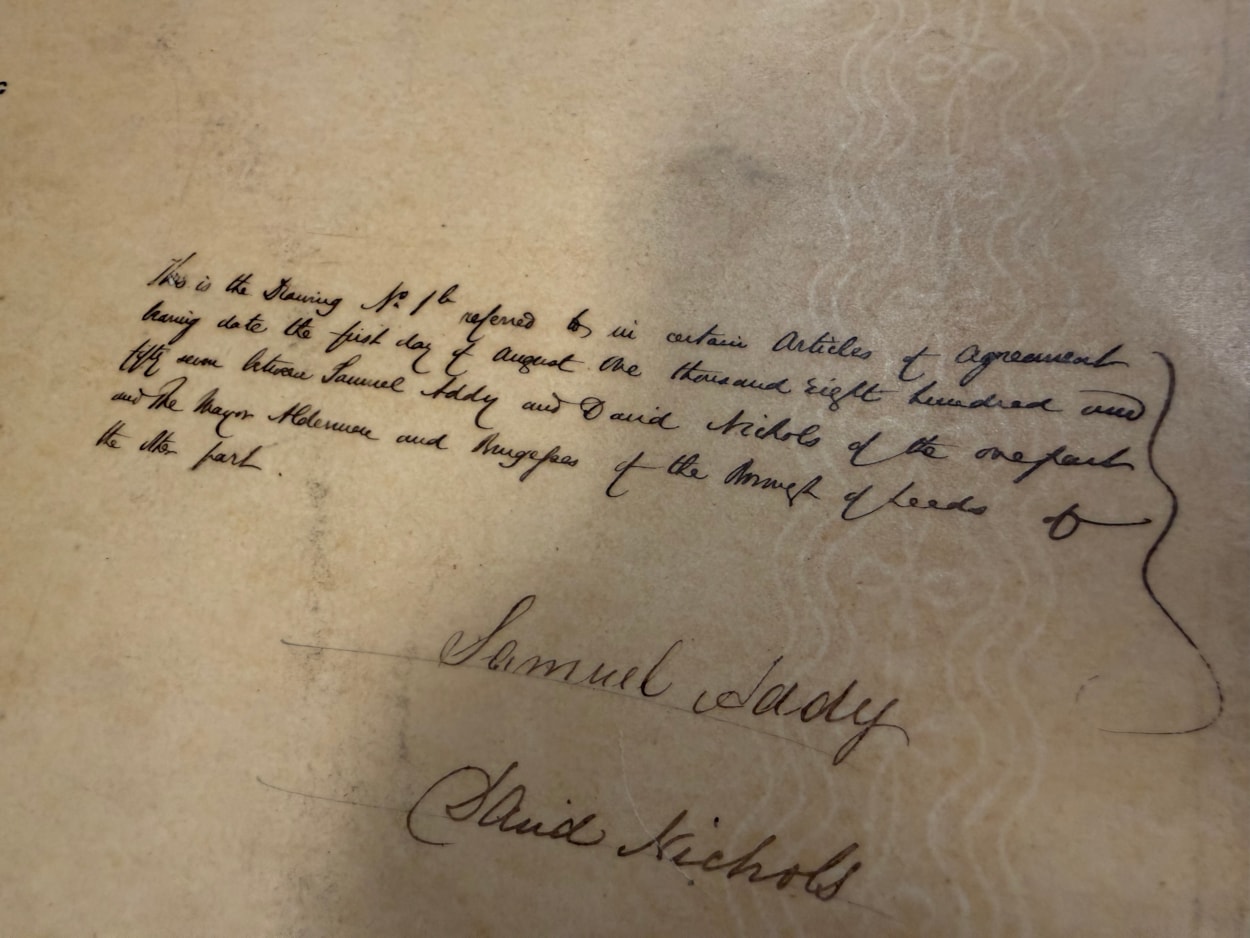 This is the Drawing No. 1b referred to, in certain Articles of Agreement
bearing date the first day of August One thousand Eight hundred and
fifty seven between Samuel Addy and David Nichols of the one part
and The Mayor Aldermen and Burgesses of the Borough of Leeds of
the other part.
Samuel Addy
David Nichols